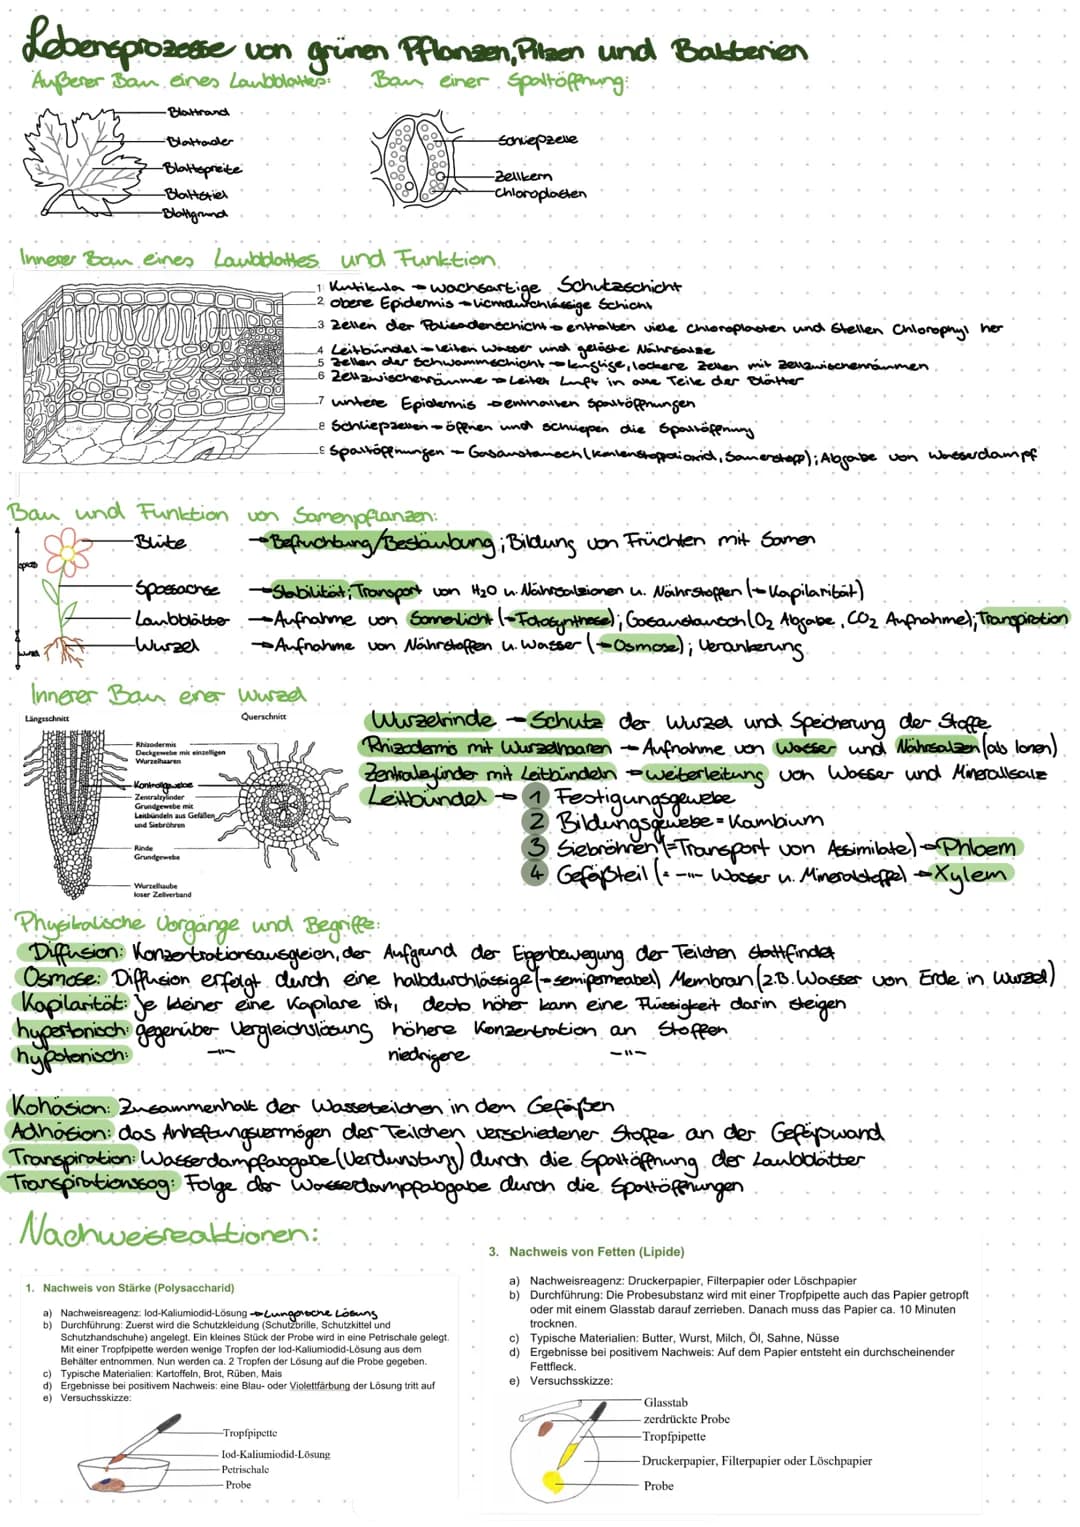 Lebensprozesse von grünen Pflanzen, Pilzen und Bakterien
Äußerer Bau eines Laubblattes:
Bau einer Spaltöffnung:
Blattrand
Blattader
Blattspreite
Blattstiel
Blattgrund
Schließzelle
Zellkern
Chloroplasten
Innerer Bau eines Laubblattes und Funktion
1 Kutikula → wachsartige Schutzschicht
2 obere Epidermis → lichtdurchlässige Schicht
3 Zellen der Palisadenschicht → enthalten viele Chloroplasten und stellen Chlorophyl her
4 Leitbündel → leiten Wasser und gelöste Nährsalze
5 Zellen der Schwammschicht → länglige, lockere Zellen mit Zellzwischenräumen
6 Zellzwischenräume → Leiten Luft in alle Teile der Blätter
7 untere Epidermis → enthalten Spaltöffnungen
8 Schließzellen → öffnen und schließen die Spaltöffnung
9 Spaltöffnungen → Gasaustausch (Kohlenstoffdioxid, Sauerstoff); Abgabe von Wasserdampf
Bau und Funktion von Samenpflanzen:
Blüte → Befruchtung/Bestäubung; Bildung von Früchten mit Samen
Sprossachse → Stabilität; Transport von H2O u. Nährsalzionen u. Nährstoffen (→ Kapilarität)
Laubblätter → Aufnahme von Sonnenlicht (→ Fotosynthese); Gasaustausch (O2 Abgabe, CO2 Aufnahme); Transpiration
Wurzel → Aufnahme von Nährstoffen u. Wasser (→ Osmose); Verankerung
Innerer Bau einer Wurzel
Längsschnitt
Querschnitt
Rhizodermis
Deckgewebe mit einzelligen
Wurzelhaaren
Zentralzylinder
Grundgewebe mit
Leitbündeln aus Gefäßen
und Siebröhren
Rinde
Grundgewebe
Wurzelhaube
loser Zellverband
Wurzelrinde → Schutz der Wurzel und Speicherung der Stoffe
Rhizodermis mit Wurzelhaaren → Aufnahme von Wasser und Nährsalzen (als Ionen)
Zentralzylinder mit Leitbündeln → Weiterleitung von Wasser und Minerallsalze
Leitbündel → 1 Festigungsgewebe
2 Bildungsgewebe = Kambium
3 Siebröhren (=Transport von Assimilate) → Phloem
4 Gefäßteil (= -"- Wasser u. Mineralstoffe) → Xylem
Physikalische Vorgänge und Begriffe:
Diffusion: Konzentrationsausgleich, der Aufgrund der Eigenbewegung der Teilchen stattfindet
Osmose: Diffusion erfolgt durch eine halbdurchlässige (→semipermeabel) Membran (z.B. Wasser von Erde in Wurzel)
Kapilarität: je kleiner eine Kapilare ist, desto höher kann eine Flüssigkeit darin steigen
hypertonisch: gegenüber Vergleichslösung höhere Konzentration an Stoffen
hypotonisch: -"- niedrigere -"-
Kohäsion: Zusammenhalt der Wasserteilchen in dem Gefäßen
Adhäsion: das Anheftungsvermögen der Teilchen verschiedener Stoffe an der Gefäßwand
Transpiration: Wasserdampfabgabe (Verdunstung) durch die Spaltöffnung der Laubblätter
Transpirationssog: Folge der Wasserdampfabgabe durch die Spaltöffnungen
Nachweisreaktionen:
1. Nachweis von Stärke (Polysaccharid)
a) Nachweisreagenz: Iod-Kaliumiodid-Lösung → Lungolsche Lösung
b) Durchführung: Zuerst wird die Schutzkleidung (Schutzbrille, Schutzkittel und
Schutzhandschuhe) angelegt. Ein kleines Stück der Probe wird in eine Petrischale gelegt.
Mit einer Tropfpipette werden wenige Tropfen der Iod-Kaliumiodid-Lösung aus dem
Behälter entnommen. Nun werden ca. 2 Tropfen der Lösung auf die Probe gegeben.
c) Typische Materialien: Kartoffeln, Brot, Rüben, Mais
d) Ergebnisse bei positivem Nachweis: eine Blau- oder Violettfärbung der Lösung tritt auf
e) Versuchsskizze:
Tropfpipette
Iod-Kaliumiodid-Lösung
Petrischale
Probe
3. Nachweis von Fetten (Lipide)
a) Nachweisreagenz: Druckerpapier, Filterpapier oder Löschpapier
b) Durchführung: Die Probesubstanz wird mit einer Tropfpipette auch das Papier getropft
oder mit einem Glasstab darauf zerrieben. Danach muss das Papier ca. 10 Minuten
trocknen.
c) Typische Materialien: Butter, Wurst, Milch, Öl, Sahne, Nüsse
d) Ergebnisse bei positivem Nachweis: Auf dem Papier entsteht ein durchscheinender
Fettfleck.
e) Versuchsskizze:
Glasstab
zerdrückte Probe
Tropfpipette
Druckerpapier, Filterpapier oder Löschpapier
Probe